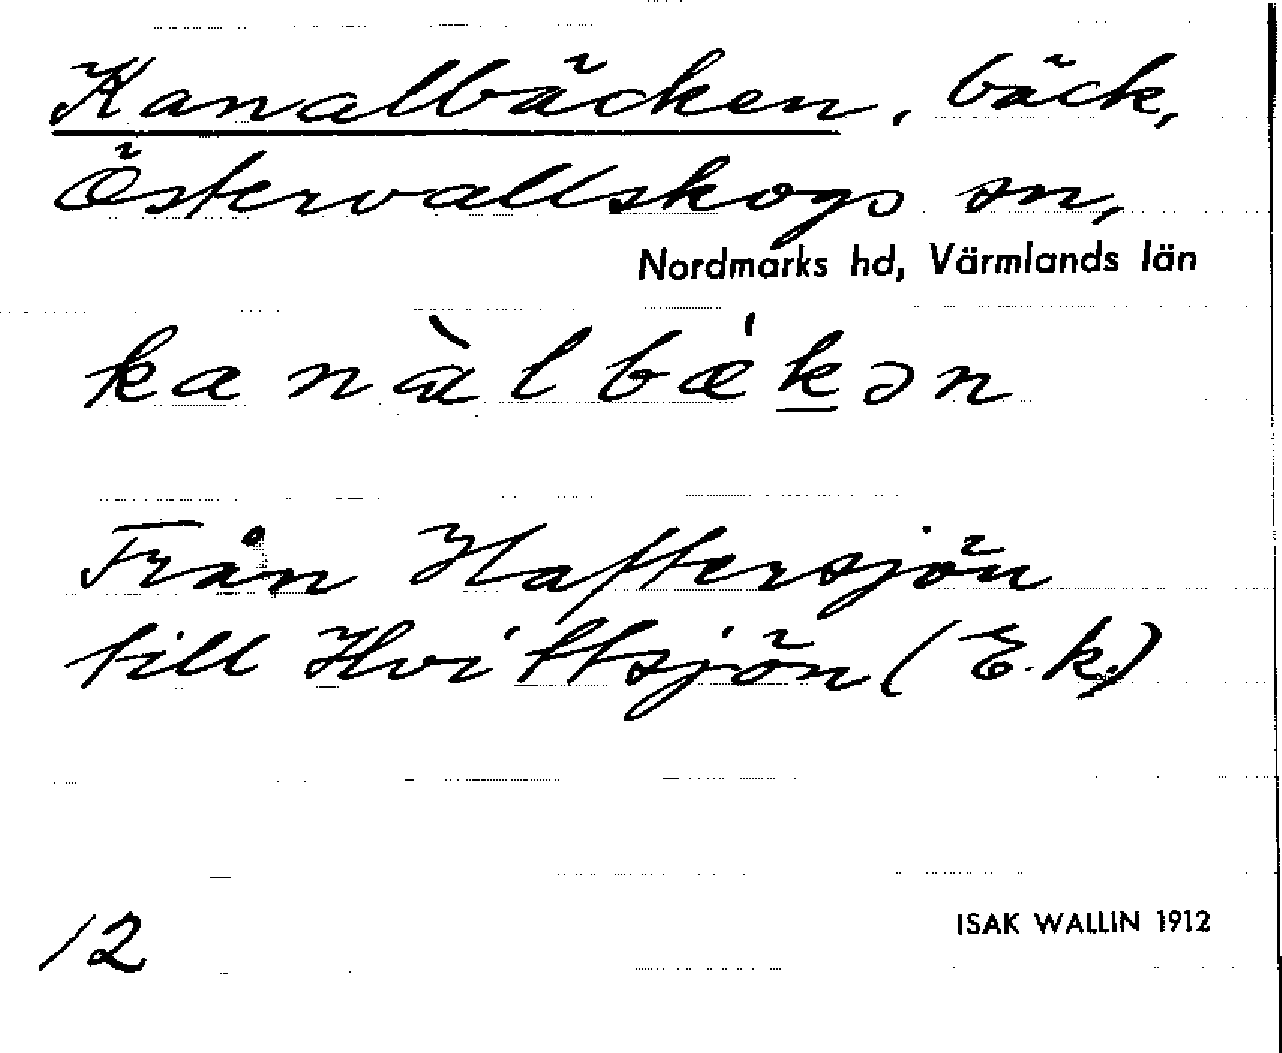 Kanalbäcken, bäck,
Östervallskogs sn,
Nordmarks hd, Värmlands län
kanàlbæ'kən
Från Haftersjön
till Hvittsjön (E.k.)
12
ISAK WALLIN 1912